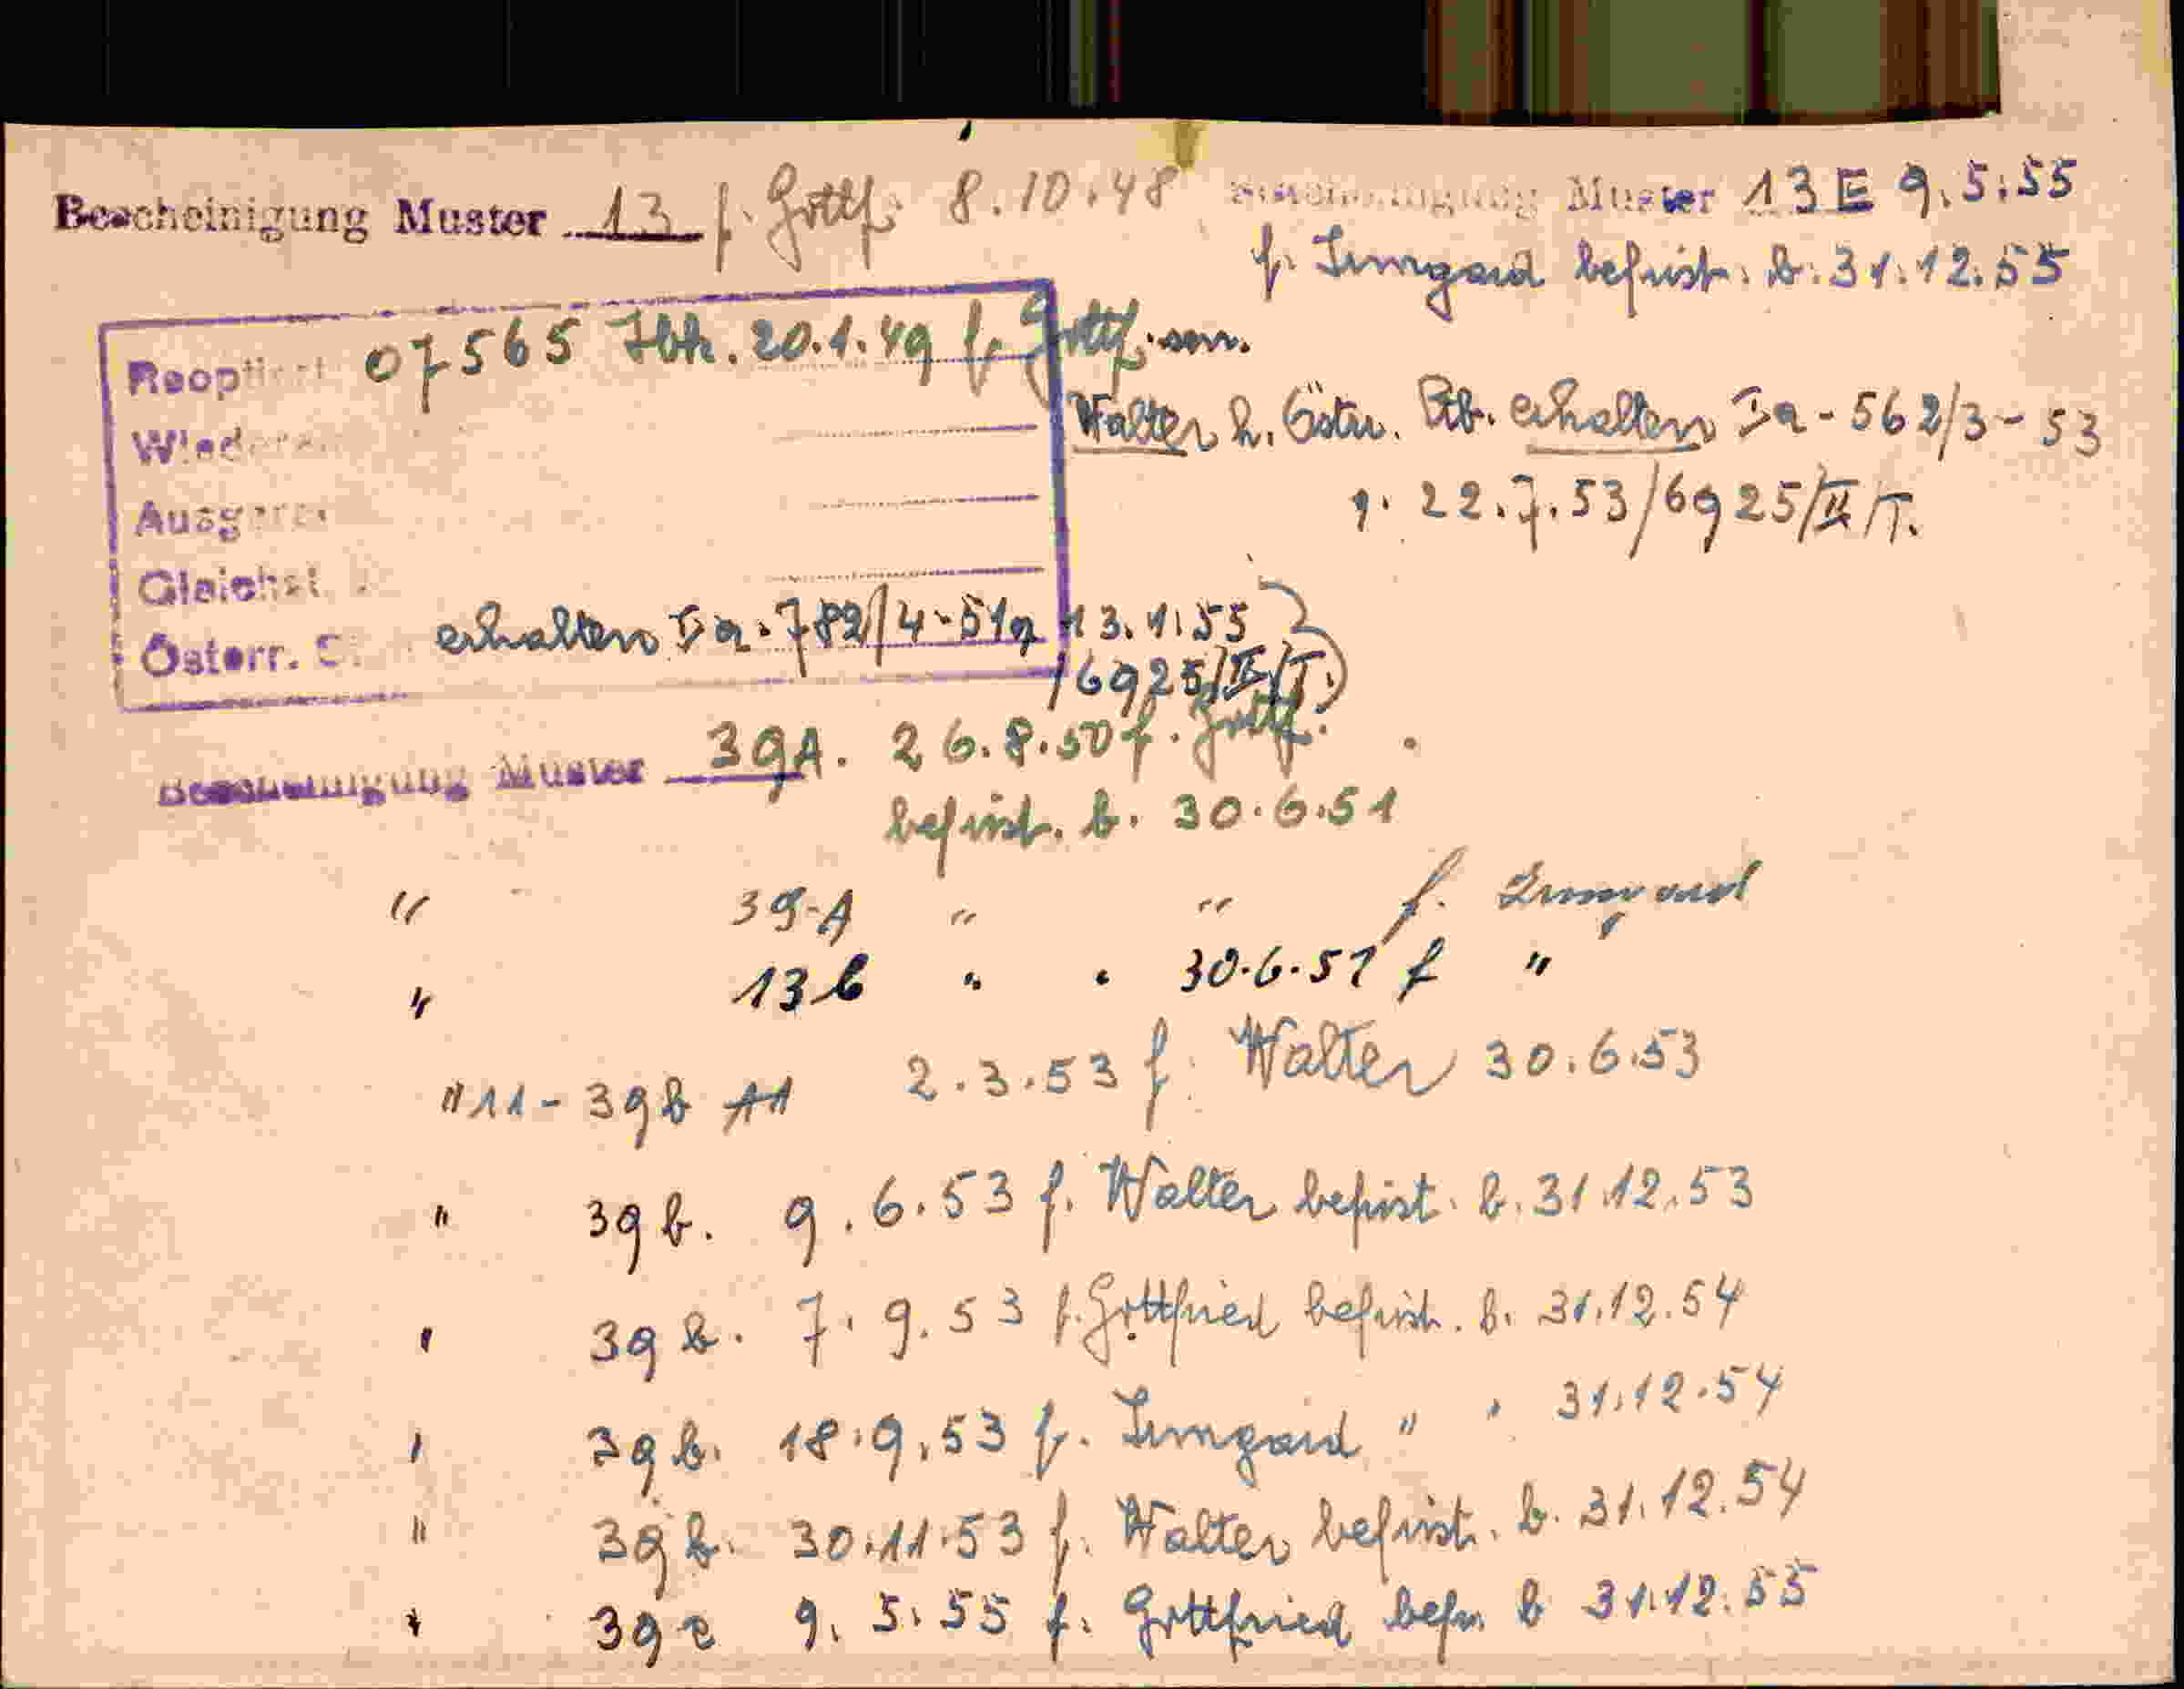 Bescheinigung Muster 13 f. Gottf. 8.10.48
Muster 13 E 9.5.55
f. Irmgard befrist. b. 31.12.55
Reopt 07565 Ibk. 20.1.49 f. Gottf. sen.
Wied
Ausg
Gleichst
Österr. erhalten Ia-782/4-51 13.1.55
/6925/II/T.)
Walter h. Östr. Stb. erhalten Ia-562/3-53
22.7.53/6925/II/T.
Bescheinigung Muster 39A. 26.8.50 f. Gottf.
befrist. b. 30.6.51
" 39-A " " f. Irmgard
" 13b " " 30.6.51 f "
" 11-39b 11 2.3.53 f. Walter 30.6.53
" 39b. 9.6.53 f. Walter befrist. b. 31.12.53
" 39b. 7.9.53 f. Gottfried befrist. b. 31.12.54
" 39b. 18.9.53 f. Irmgard " " 31.12.54
" 39b. 30.11.53 f. Walter befrist. b. 31.12.54
" 39 9.5.55 f. Gottfried befr. b 31.12.55